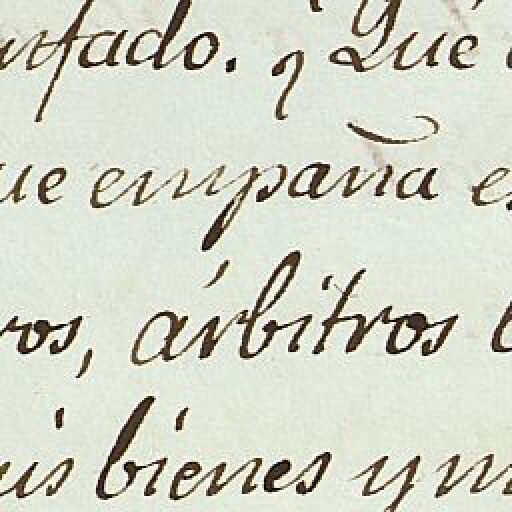 nfado. ¿Qué
ue empaña e
ros, árbitros
uis bienes y m